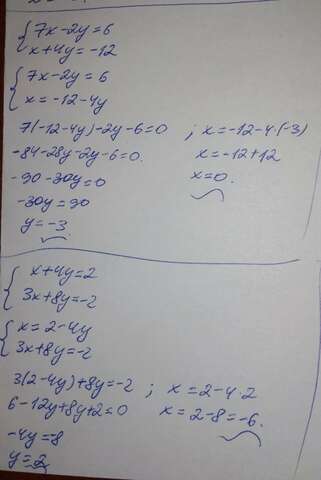 7x-2y=6
x+4y=-12
7x-2y=6
x=-12-4y
7(-12-4y)-2y-6=0 ; x=-12-4·(-3)
-84-28y-2y-6=0. x=-12+12
-90-30y=0 x=0.
-30y=90
y=-3
x+4y=2
3x+8y=-2
x=2-4y
3x+8y=-2
3(2-4y)+8y=-2 ; x=2-4·2
6-12y+8y+2=0 x=2-8=-6.
-4y=-8
y=2